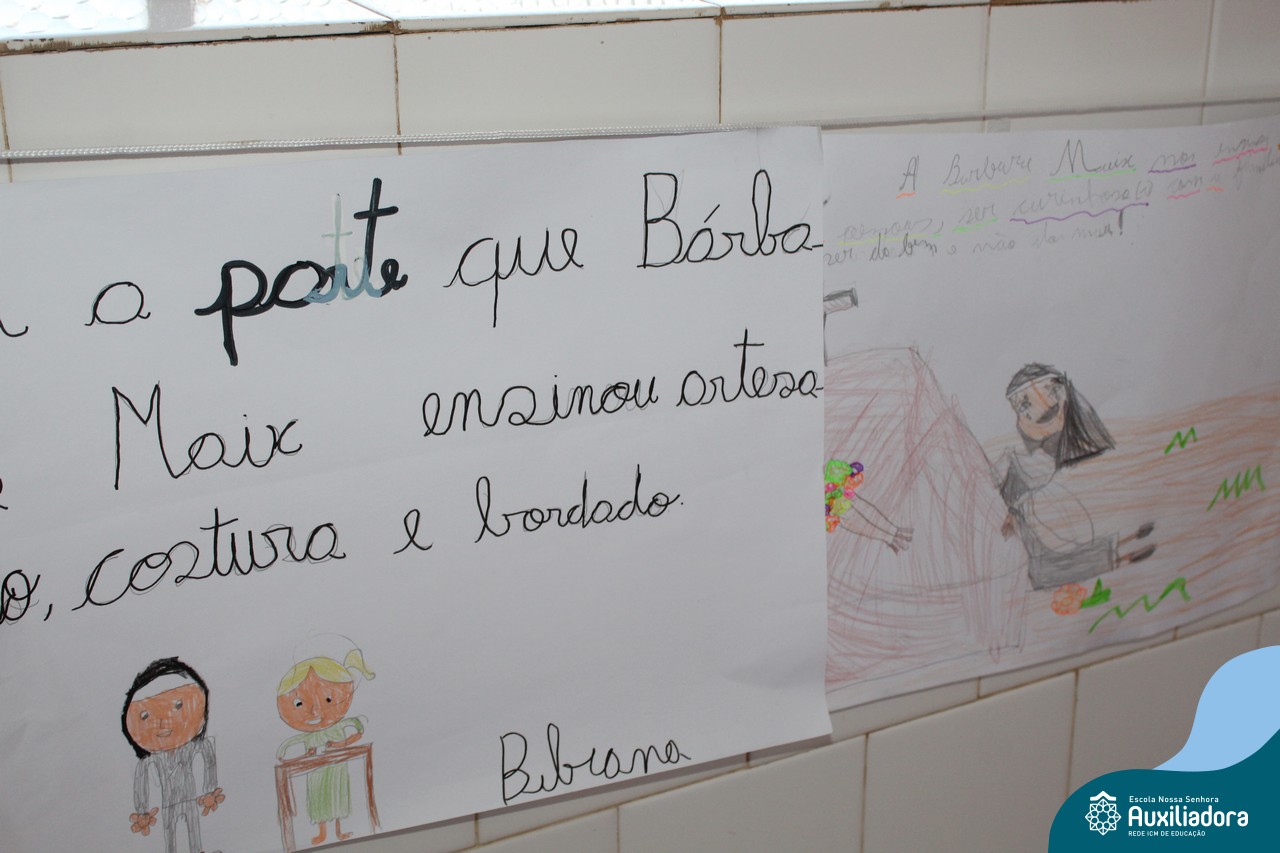 a parte que Bárba-
Maix ensinou artesa-
o, costura e bordado.
Bibiana
A Barbara Maix nos ensinou
pessoas, ser curendosa(o) com a
ser do bem e não do mau!
Escola Nossa Senhora
Auxiliadora
REDE ICM DE EDUCAÇÃO